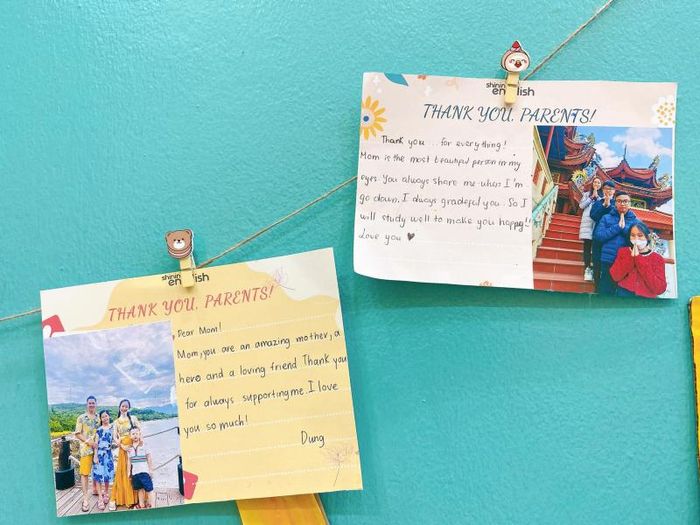 shining
english
THANK YOU, PARENTS!
Thank you ... for everything!
Mom is the most beautiful person in my
eyes. You always share me when I'm
go down. I always gradeful you. So I
will study well to make you happy!!
Love you ♥
shining
english
THANK YOU, PARENTS!
Dear Mom!
Mom, you are an amazing mother, a
hero and a loving friend Thank you
for always supporting me. I love
you so much!
Dung